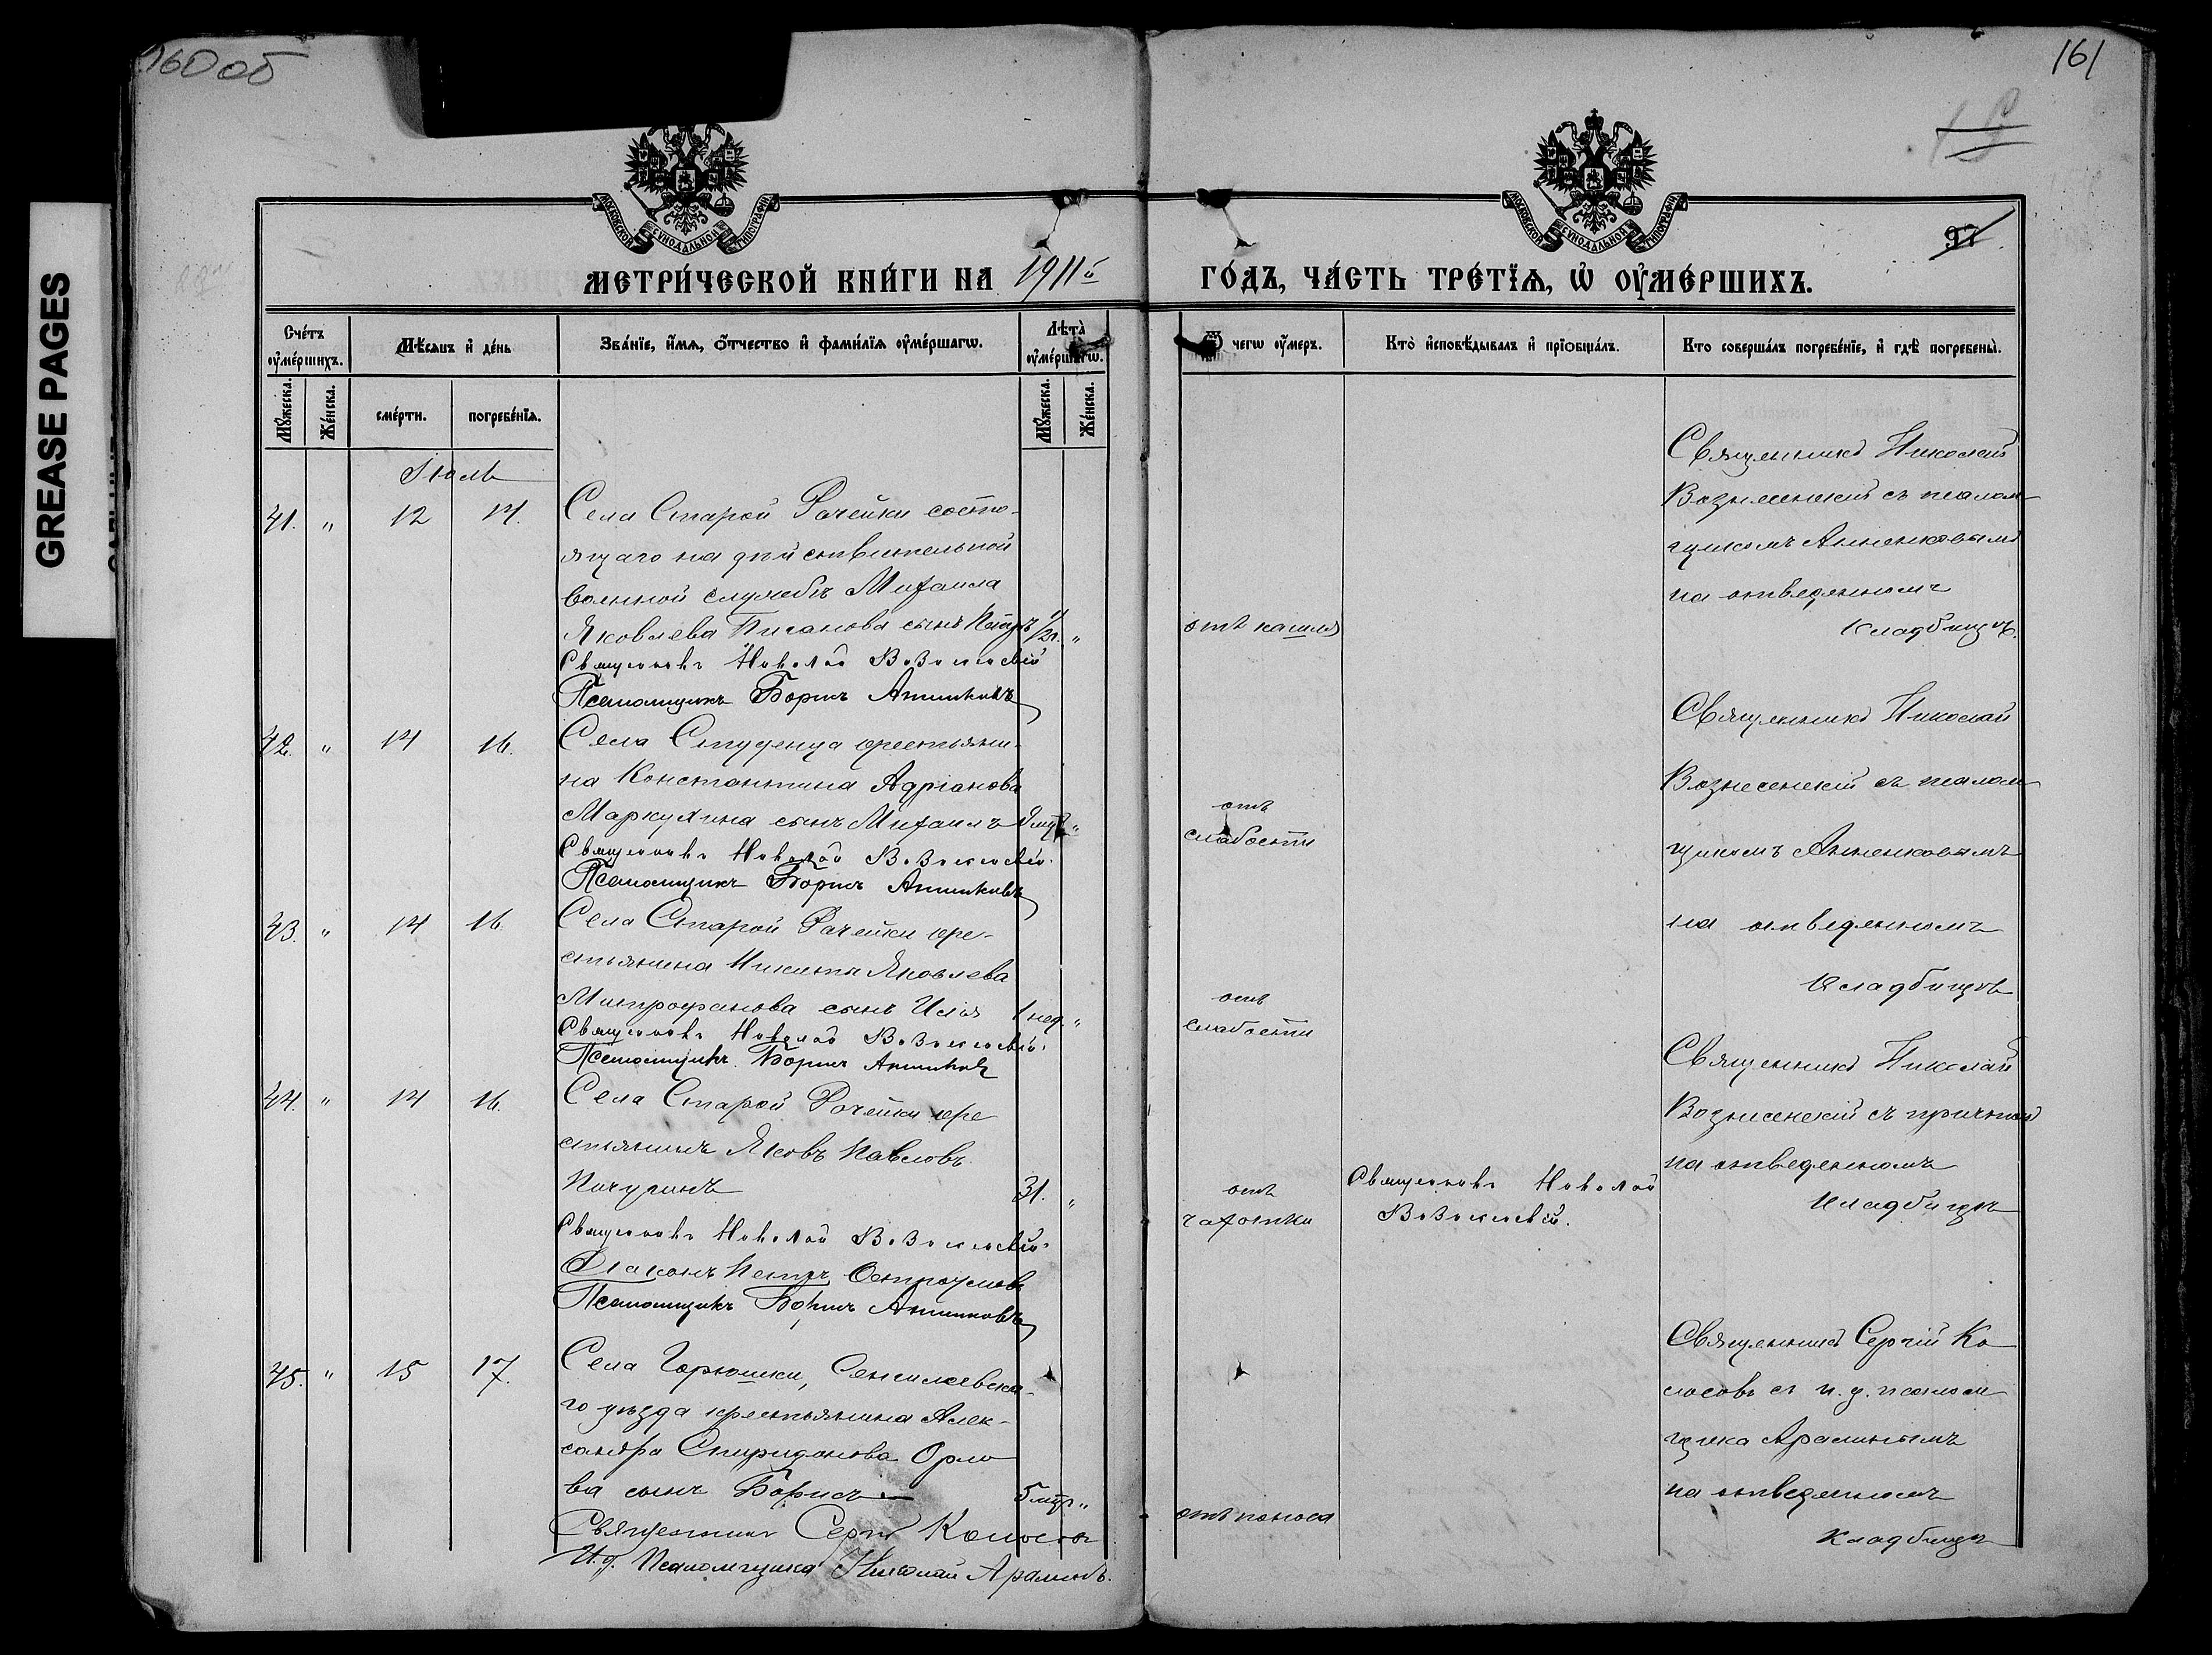 160 об
161
GREASE PAGES
97
МОСКОВСКОЙ СѴНОДАЛЬНОЙ ТИПОГРАФІИ
МОСКОВСКОЙ СѴНОДАЛЬНОЙ ТИПОГРАФІИ
МЕТРИ́ЧЕСКОЙ КНИ́ГИ НА 1911й ГО́ДЪ, ЧА́СТЬ ТРЕ́ТЇѦ, Ѡ҆ ОУ҆МЕ́РШИХЪ.
Сче́тъ оу҆ме́ршихъ.
Мѣ́сяцъ и҆ де́нь
Зва́нїе, и҆́мѧ, ѻ҆́тчество и҆ фами́лїѧ оу҆ме́ршагѡ.
Лѣта̀ оу҆ме́ршагѡ.
Ѿ чегѡ̀ оу҆́меръ.
Кто̀ и҆сповѣ́дывалъ и҆ прїѻбща́лъ.
Кто соверша́лъ погребе́нїе, и҆ гдѣ̀ погребены̀.
Мꙋ́жеска.
Же́нска.
сме́рти.
погребе́нїѧ.
Мꙋ́жеска.
Же́нска.
Іюль
41. " 12 14. Села Старой Рачейки состо-
ящаго на дѣйствительной
военной службѣ Михаила
Яковлева Писанова сынъ Петръ 1/2 г. "
Священникъ Николай Вознесенскій
Псаломщикъ Борисъ Анненковъ
отъ кашля
Священникъ Николай
Вознесенскій съ псалом-
щикомъ Анненковымъ
на отведенномъ
кладбищѣ.
42. " 14 16. Села Студенца крестьяни-
на Константина Адріанова
Маркухина сынъ Михаилъ
Священникъ Николай Вознесенскій.
Псаломщикъ Борисъ Анненковъ
отъ
слабости
Священникъ Николай
Вознесенскій съ псалом
щикомъ Анненковымъ
на отведенномъ
кладбищѣ
43. " 14 16 Села Старой Рачейки кре-
стьянина Никиты Яковлева
Митрофанова сынъ Илія 1 нед. "
Священникъ Николай Вознесенскій.
Псаломщикъ Борисъ Анненковъ
отъ
слабости
44. " 14 16. Села Старой Рачейки кре
стьянинъ Яковъ Павловъ
Пичугинъ 31. "
Священникъ Николай Вознесенскій.
Діаконъ Петръ Остроумовъ
Псаломщикъ Борисъ Анненковъ
отъ
чахотки
Священникъ Николай
Вознесенскій.
Священникъ Николай
Вознесенскій съ причтомъ
на отведенномъ
кладбищѣ
45. " 15 17. Села Горюшки, Сенгилеевска-
го уѣзда крестьянина Алек-
сандра Спиридонова Орло
ва сынъ Борисъ 5 мцъ "
Священникъ Сергій Колосовъ
И. д. Псаломщика Николай Арамовъ.
отъ поноса
Священникъ Сергій Ко
лосовъ съ и. д. псалом
щика
на отведенномъ
кладбищѣ